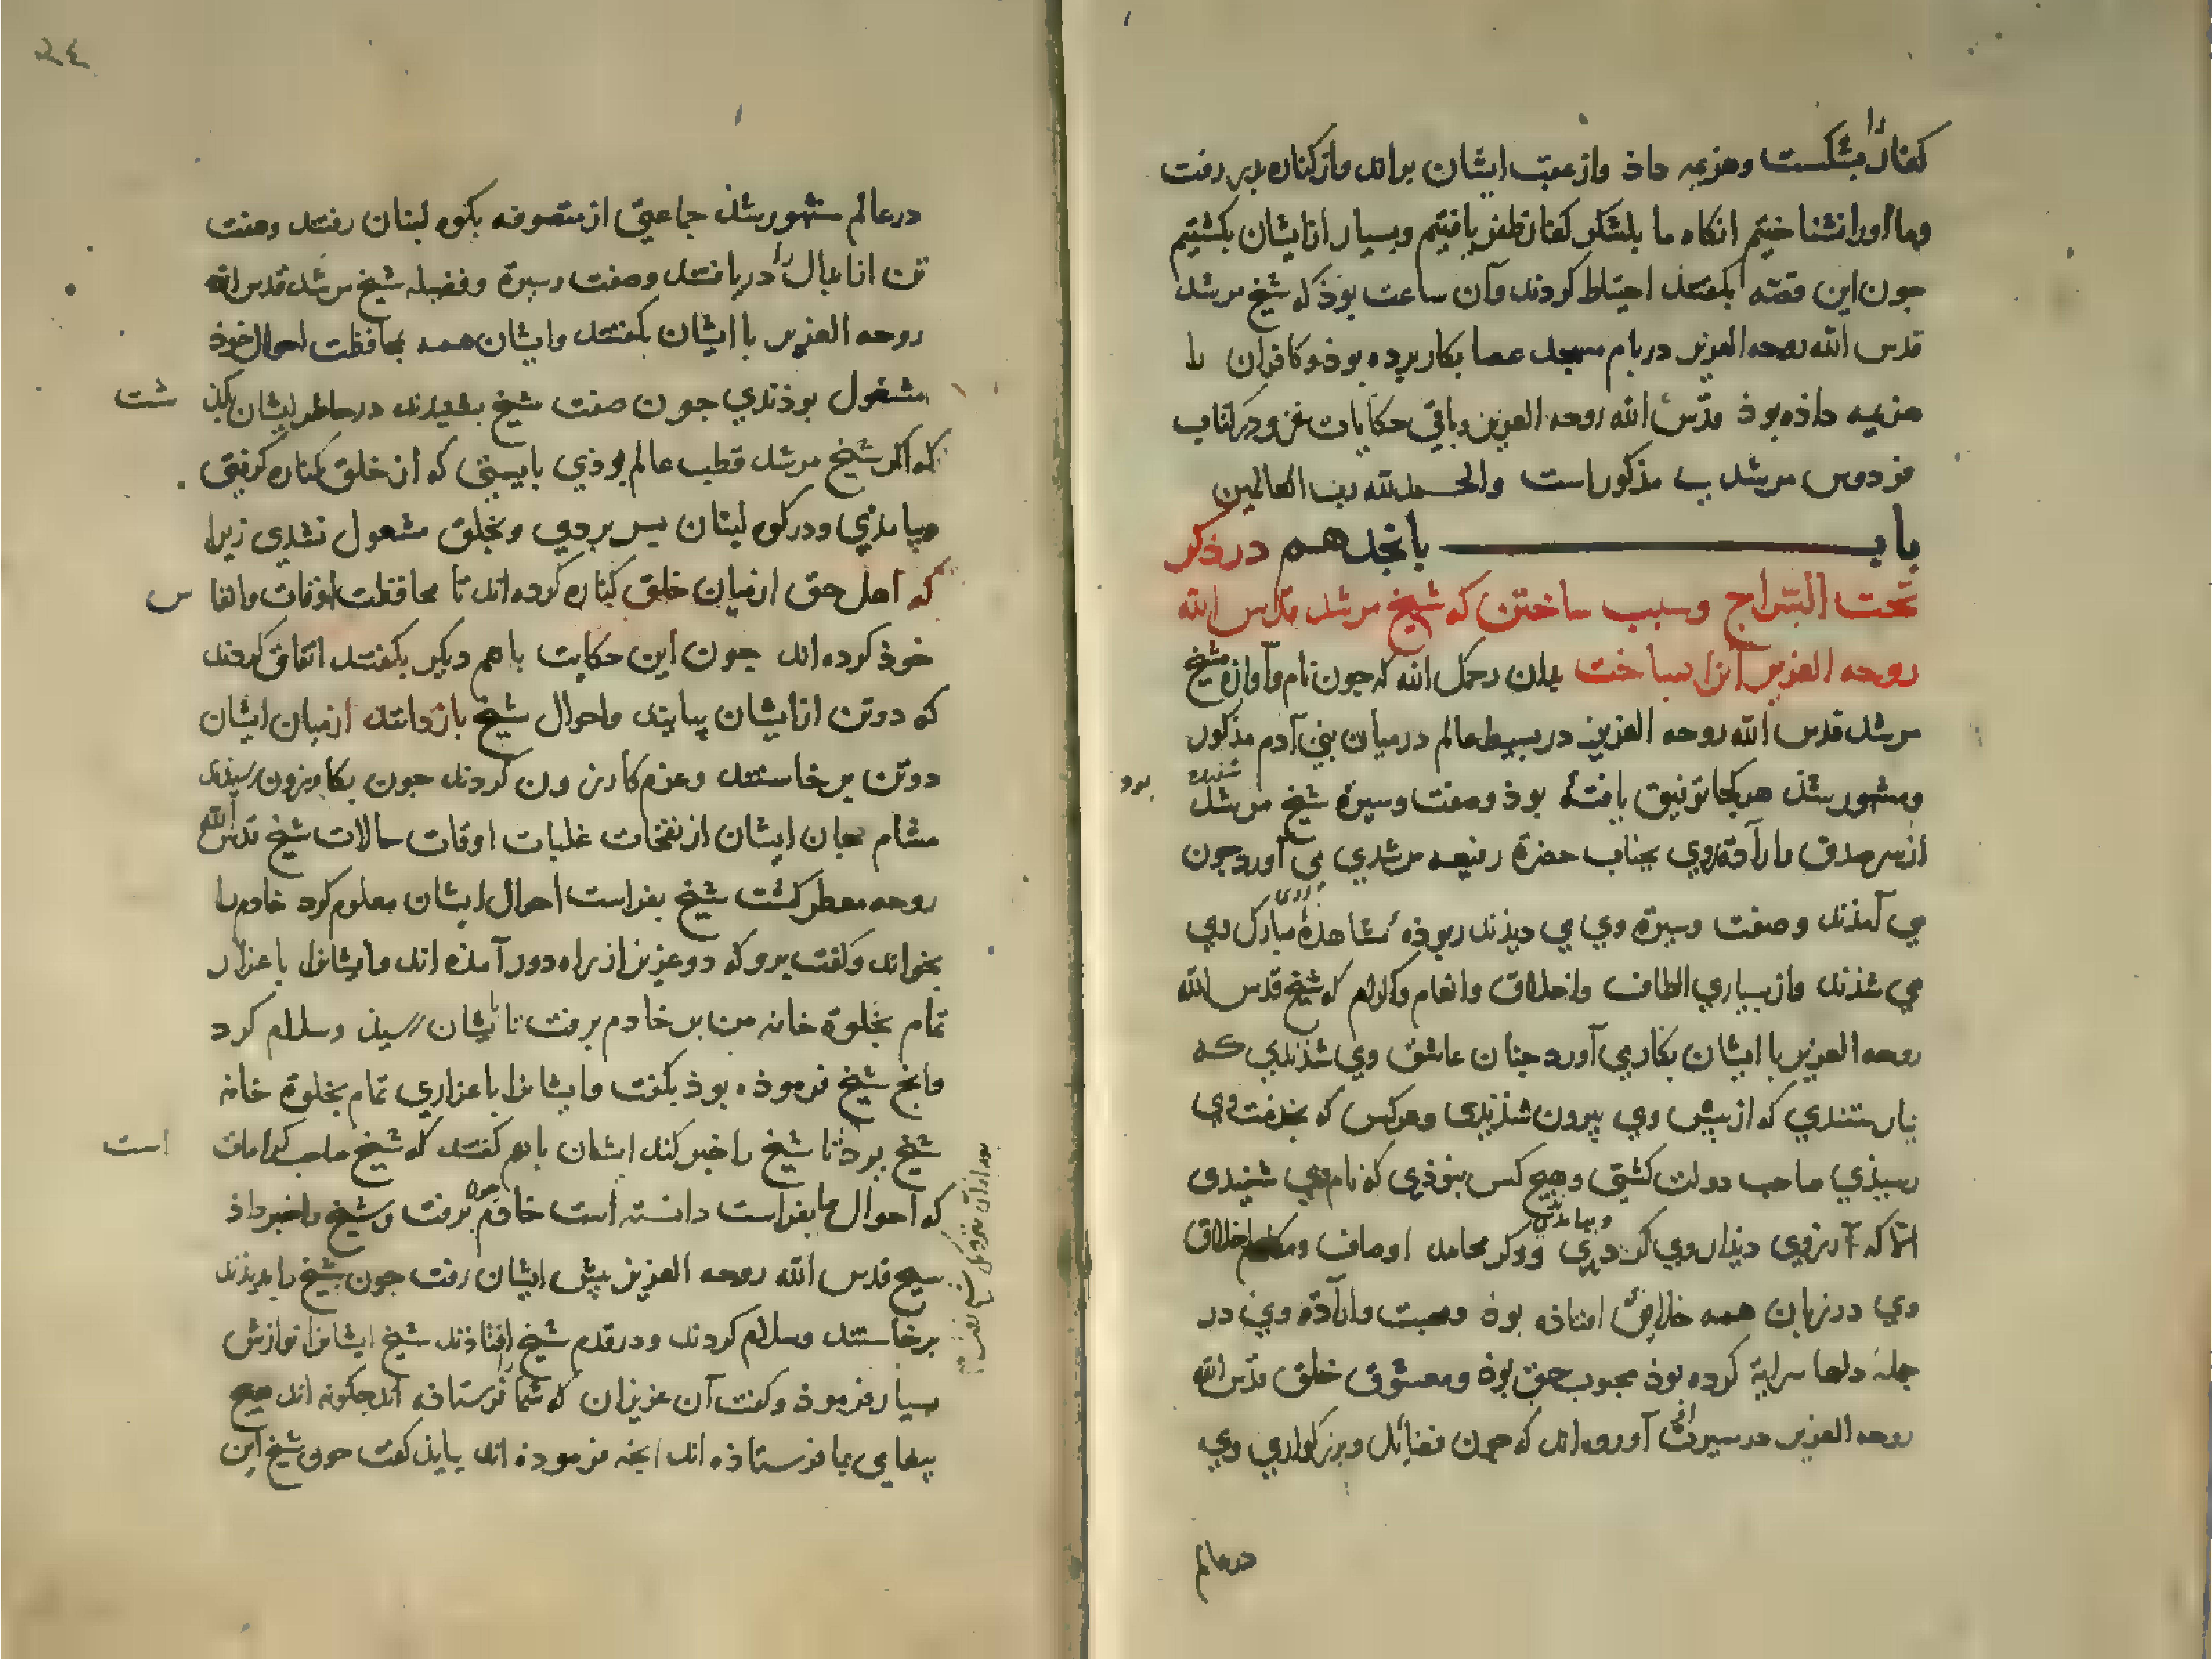 کفار را بشکست و هزیمه داذ و از عقب ایشان براند و از کناره بدر رفت
و ما او را نشناختیم انکاه ما بلشکر کفار ظفر یافتیم و بسیار از ایشان بکشتیم
جون این قصه بکفتند احتیاط کردند و آن ساعت بوذ که شیخ مرشد
قدس الله روحه العزیز در بام مسجد عصا بکار برده بوذ و کافران را
هزیمه داذه بوذ قدّس الله روحه العزیز و باقی حکایات غزو در کتاب
فردوس مرشدیه مذکور است والحمدلله رب العالمین
باب بانجدهم در ذکر
تحت السّراج و سبب ساختن که شیخ مرشد قدس الله
روحه العزیز آنرا ساخت بدان رحمک الله که جون نام و آوازه شیخ
مرشد قدس الله روحه العزیز در بسیط عالم در میان بنی آدم مذکور
و مشهور شذ هر کجا توفیق یافتهٔ بوذ و صفت و سیرة شیخ مرشد شنیده بود
از سر صدق و ارادة روی بجناب حضرة رفیعه مرشدی می آورد جون
می آمذند و صفت و سیرة وی می دیذند ربوذهٔ مشاهدهٔ مبارک وی
می شذند و از بسیاری الطاف و اخلاق و انعام و اکرام که شیخ قدس الله
روحه العزیز با ایشان بکار می آورد جنان عاشق وی شذندی که
نیارستندی که از پیش وی بیرون شذندی و هر کس که بخذمت وی
رسیذی صاحب دولت کشتی و هیچ کس نبوذی که نام وی شنیدی
الّا که آرزوی دیذار وی کردی و ذکر محامد اوصاف و مکارم اخلاق
وی در زبان همه خلایق افتاذه بوذ و محبت و ارادة وی در
جملهٔ دلها سرایة کرده بوذ محبوب حق بوذ و معشوق خلق قدّس الله
روحه العزیز در سیرت آورده اند که جون فضائل و بزرکواری وی
در عالم
٢٤
در عالم مشهور شذ جماعتی از متصوفه بکوه لبنان رفتند و هفت
تن از ابدال را دریافتند و صفت و سیرة و فضیله شیخ مرشد قدس الله
روحه العزیز با ایشان بکفتند و ایشان همه بمحافظت احوال خوذ
مشغول بوذندی جون صفت شیخ بشنیدند در خاطر ایشان بکذ شت
که اکر شیخ مرشد قطب عالم بوذی بایستی که از خلق کناره کرفتی
و بیامذی و در کوه لبنان بسر بردی و بخلق مشغول نشدی زیرا
که اهل حق از میان خلق کناره کرده اند تا محافظت اوقات و انفا س
خوذ کرده اند جون این حکایت با هم دیکر بکفتند اتفاق کردند
که دو تن از ایشان بیایند و احوال شیخ باز دانند از میان ایشان
دو تن بر خاستند و عزم کازرون کردند جون بکازرون رسیذند
مشام جان ایشان از نفحات غلبات اوقات حالات شیخ قدس الله
روحه معطر کشت شیخ بفراست احوال ایشان معلوم کرد خادم را
بخواند و کفت برو که دو عزیز از راه دور آمذه اند و ایشانرا باعزاز
تمام بخلوة خانه من بر خادم برفت تا بایشان رسیذ و سلام کرد
و انج شیخ فرموذه بوذ بکفت و ایشانرا باعزازی تمام بخلوة خانه
شیخ برد تا شیخ را خبر کند ایشان با هم کفتند که شیخ صاحب کرامات است
که احوال ما بفراست دانسته است خادم جون برفت و شیخ را خبر داذ
شیخ قدس الله روحه العزیز پیش ایشان رفت جون شیخ را بدیذند
بر خاستند و سلام کردند و در قدم شیخ افتاذند شیخ ایشانرا نوازش
بسیار فرموذ و کفت آن عزیزان که شما را فرستاذه اند جکونه اند هیج
پیغامی بما فرستاذه اند انجه فرموذه اند بایذ کفت جون شیخ این